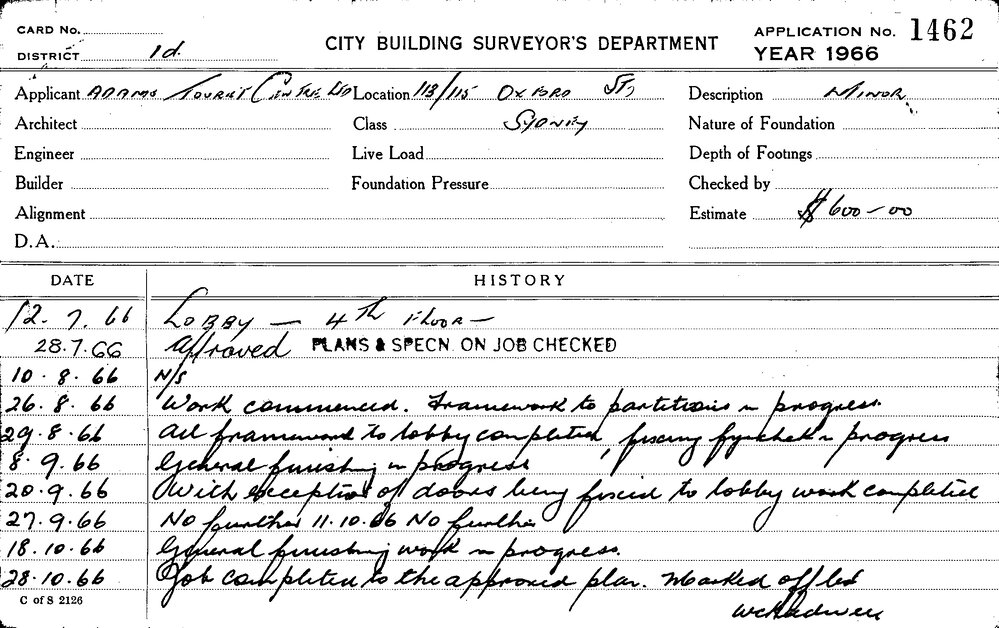 CARD No.
DISTRICT 1d.
CITY BUILDING SURVEYOR'S DEPARTMENT
APPLICATION No. 1462
YEAR 1966
Applicant ADAMS TOURIST CENTRE LTD Location 113/115 OXFORD ST, Description MINOR.
Architect Class SYDNEY Nature of Foundation
Engineer Live Load Depth of Footings
Builder Foundation Pressure Checked by
Alignment Estimate $600-00
D.A.
DATE HISTORY
12.7.66 LOBBY — 4TH FLOOR —
28.7.66 Approved PLANS & SPECN. ON JOB CHECKED
10.8.66 N/S
26.8.66 Work commenced. Framework to partitions in progress.
29.8.66 All framework to lobby completed, fixing in progress
8.9.66 General finishing in progress
20.9.66 With exception of doors being fixed to lobby work completed
27.9.66 No further 11.10.66 No further
18.10.66 General finishing work in progress.
28.10.66 Job completed to the approved plan. Marked off
C of S 2126